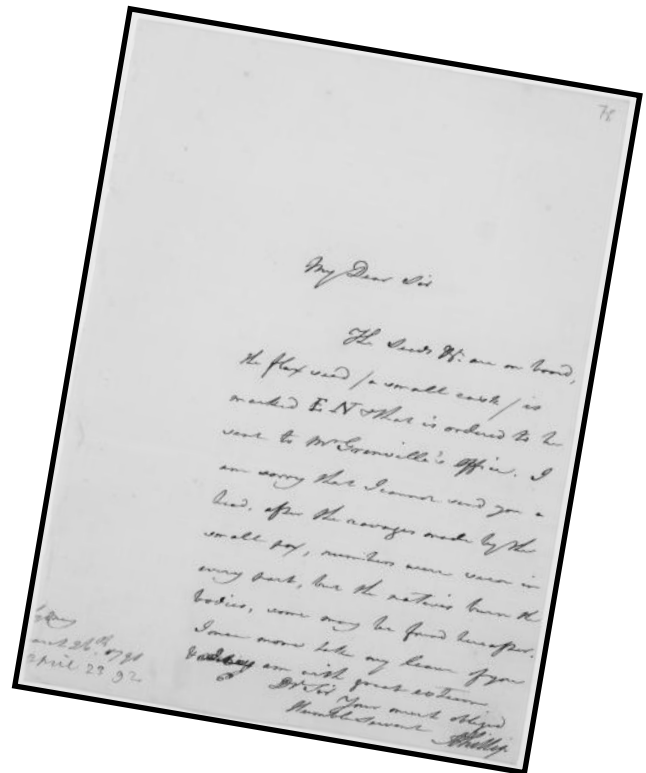 78
My Dear Sir
The Seeds &c. are on board,
the flax seed / a small cask / is
marked E. N & that is ordered to be
sent to Mr Grenville's Office. I
am sorry that I cannot send you a
head. after the ravages made by the
small pox, numbers were seen in
every part, but the natives burn the
bodies, some may be found hereafter.
I once more take my leave of you
& am with great esteem
Dr Sir Your much obliged
Humble Servant APhillip.
26th 1791
April 23 92